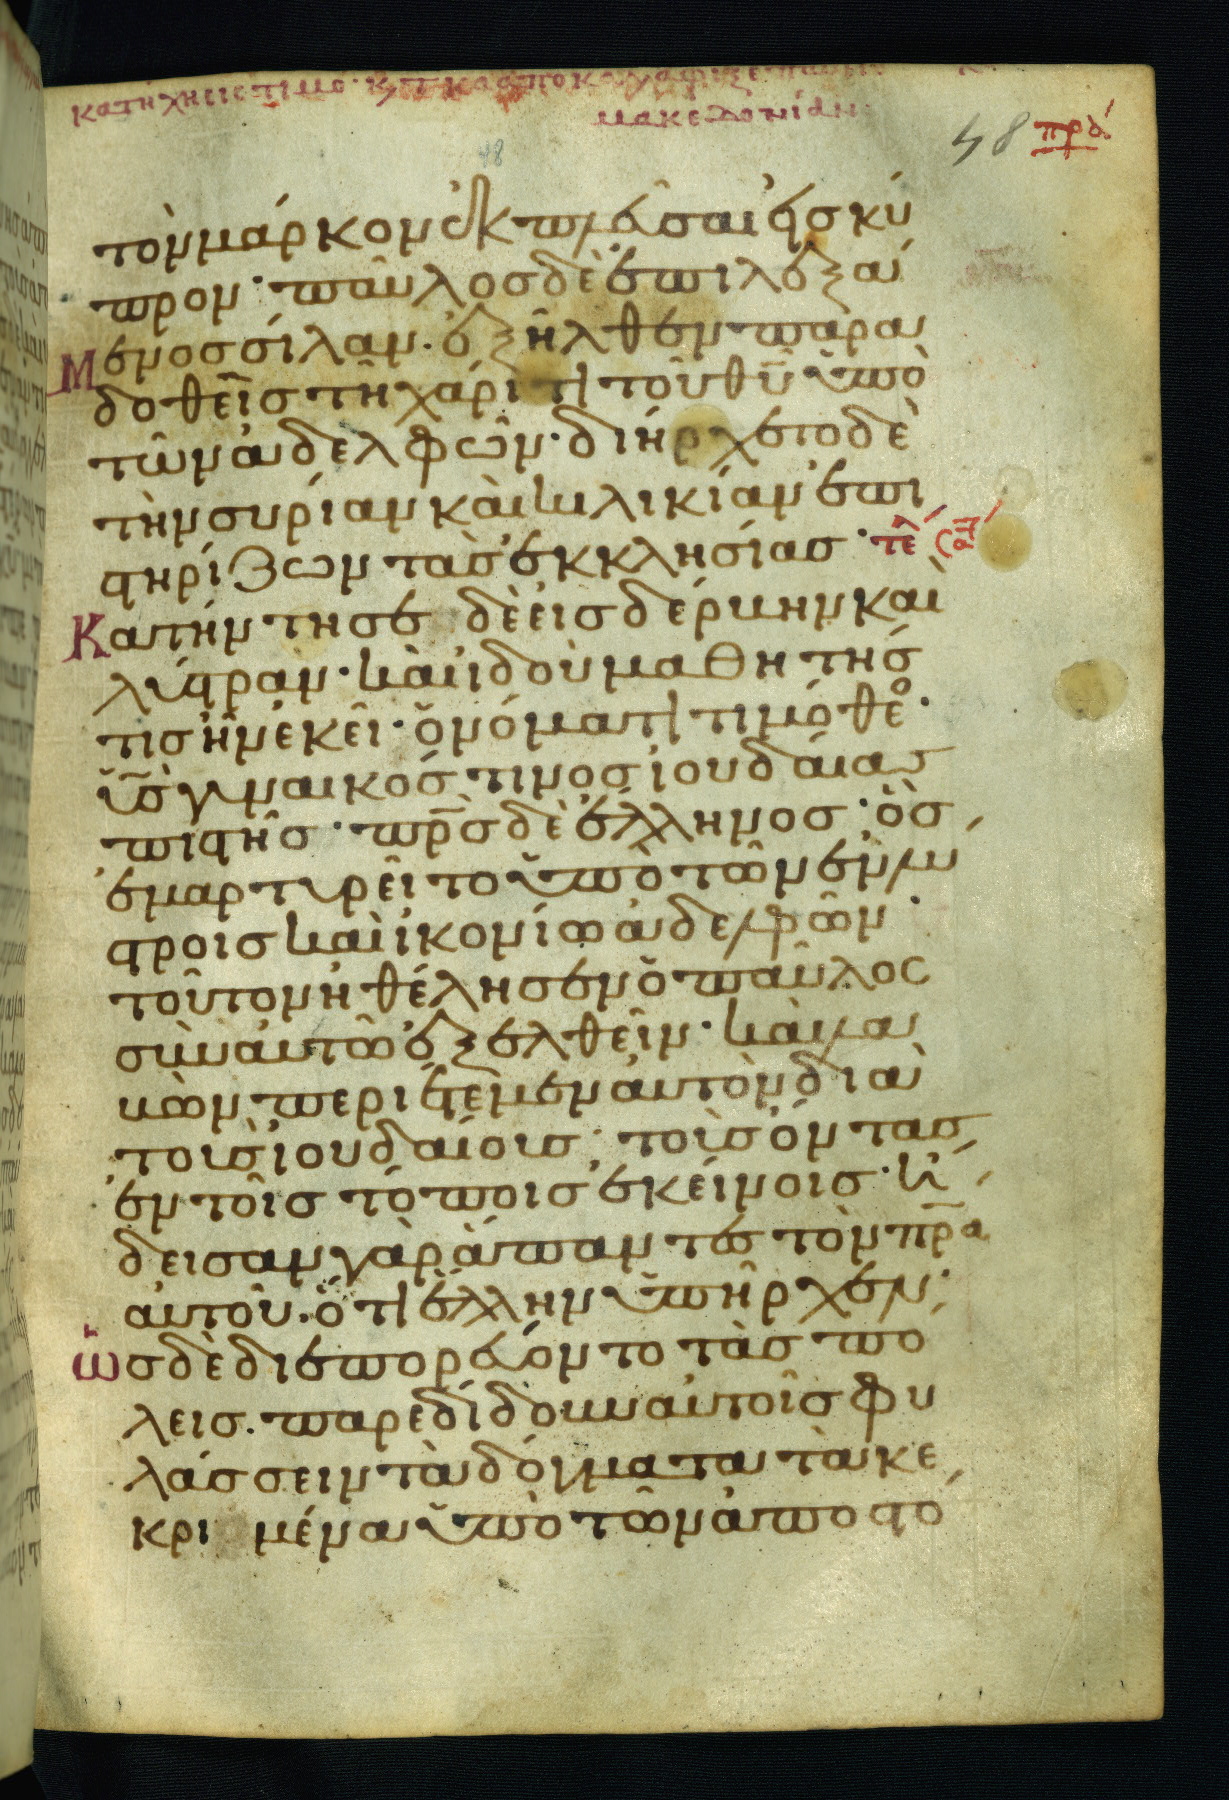 κατήχησις τιμο
μακεδονίαν
48 πρά
48
τὸν μάρκον ἐκπλεῦσαι εἰς κύ
προν· παῦλος δὲ ἐπιλεξά
μενος σίλαν· ἐξῆλθεν παρα
δοθεὶς τῆ χάριτι τοῦ θῦ ὑπὸ
τῶν ἀδελφῶν· διήρχετο δὲ
τὴν συρίαν καὶ κιλικίαν ἐπι
στηρίζων τὰς ἐκκλησίας· τέλ
Κατήντησε δὲ εἰς δέρβην καὶ
λύστραν· καὶ ἰδοὺ μαθητής
τις ἦν ἐκεῖ· ὀνόματι τιμόθεο·
ὑὸς γυναικός τινος ἰουδαίας
πιστῆς· πρς δὲ ἕλληνος· ὃς
ἐμαρτυρεῖτο ὑπὸ τῶν ἐν λύ
στροις καὶ ἰκονίω ἀδελφῶν·
τοῦτον ἠθέλησεν ὁ παῦλος
σὺν αὐτῶ ἐξελθεῖν· καὶ λα
βὼν περιέτεμεν αὐτὸν διὰ
τοὺς ἰουδαίους· τοὺς ὄντας
ἐν τοῖς τόποις ἐκείνοις· ἤ
δεισαν γὰρ ἅπαντες τὸν πρα
αὐτοῦ· ὅτι ἕλλην ὑπῆρχεν·
ὡς δὲ διεπορεύοντο τὰς πό
λεις· παρεδίδουν αὐτοῖς φυ
λάσσειν τὰ δόγματα τὰ κε
κριμένα ὑπὸ τῶν ἀποστό